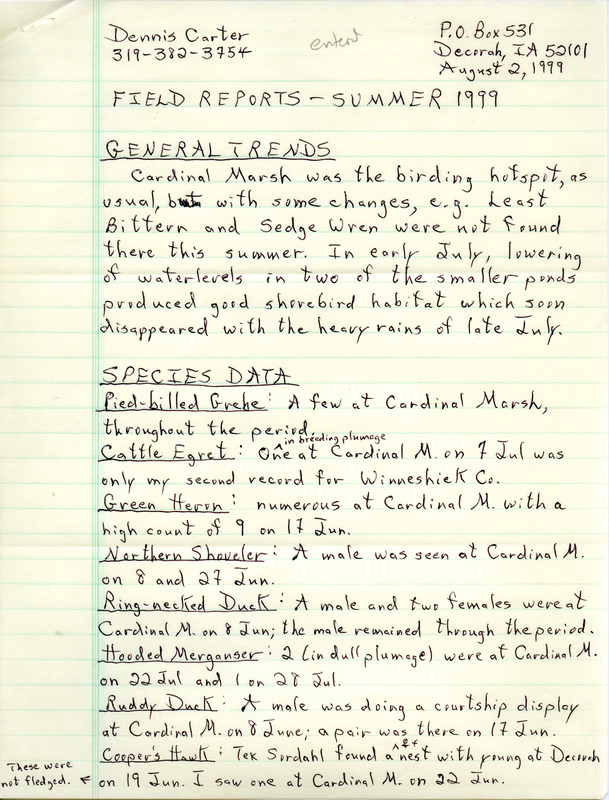 Dennis Carter
319-382-3754
entered
P.O. Box 531
Decorah, IA 52101
August 2, 1999
FIELD REPORTS - SUMMER 1999
GENERAL TRENDS
Cardinal Marsh was the birding hotspot, as
usual, but with some changes, e.g. Least
Bittern and Sedge Wren were not found
there this summer. In early July, lowering
of waterlevels in two of the smaller ponds
produced good shorebird habitat which soon
disappeared with the heavy rains of late July.
SPECIES DATA
Pied-billed Grebe: A few at Cardinal Marsh,
throughout the period.
in breeding plumage
Cattle Egret: One at Cardinal M. on 7 Jul was
only my second record for Winneshiek Co.
Green Heron: numerous at Cardinal M. with a
high count of 9 on 17 Jun.
Northern Shoveler: A male was seen at Cardinal M.
on 8 and 27 Jun.
Ring-necked Duck: A male and two females were at
Cardinal M. on 8 Jun; the male remained through the period.
Hooded Merganser: 2 (in dull plumage) were at Cardinal M.
on 22 Jul and 1 on 28 Jul.
Ruddy Duck: A male was doing a courtship display
at Cardinal M. on 8 June; a pair was there on 17 Jun.
Cooper's Hawk: Tex Sordahl found a nest with young at Decorah
on 19 Jun. I saw one at Cardinal M. on 22 Jun.
These were
not fledged.